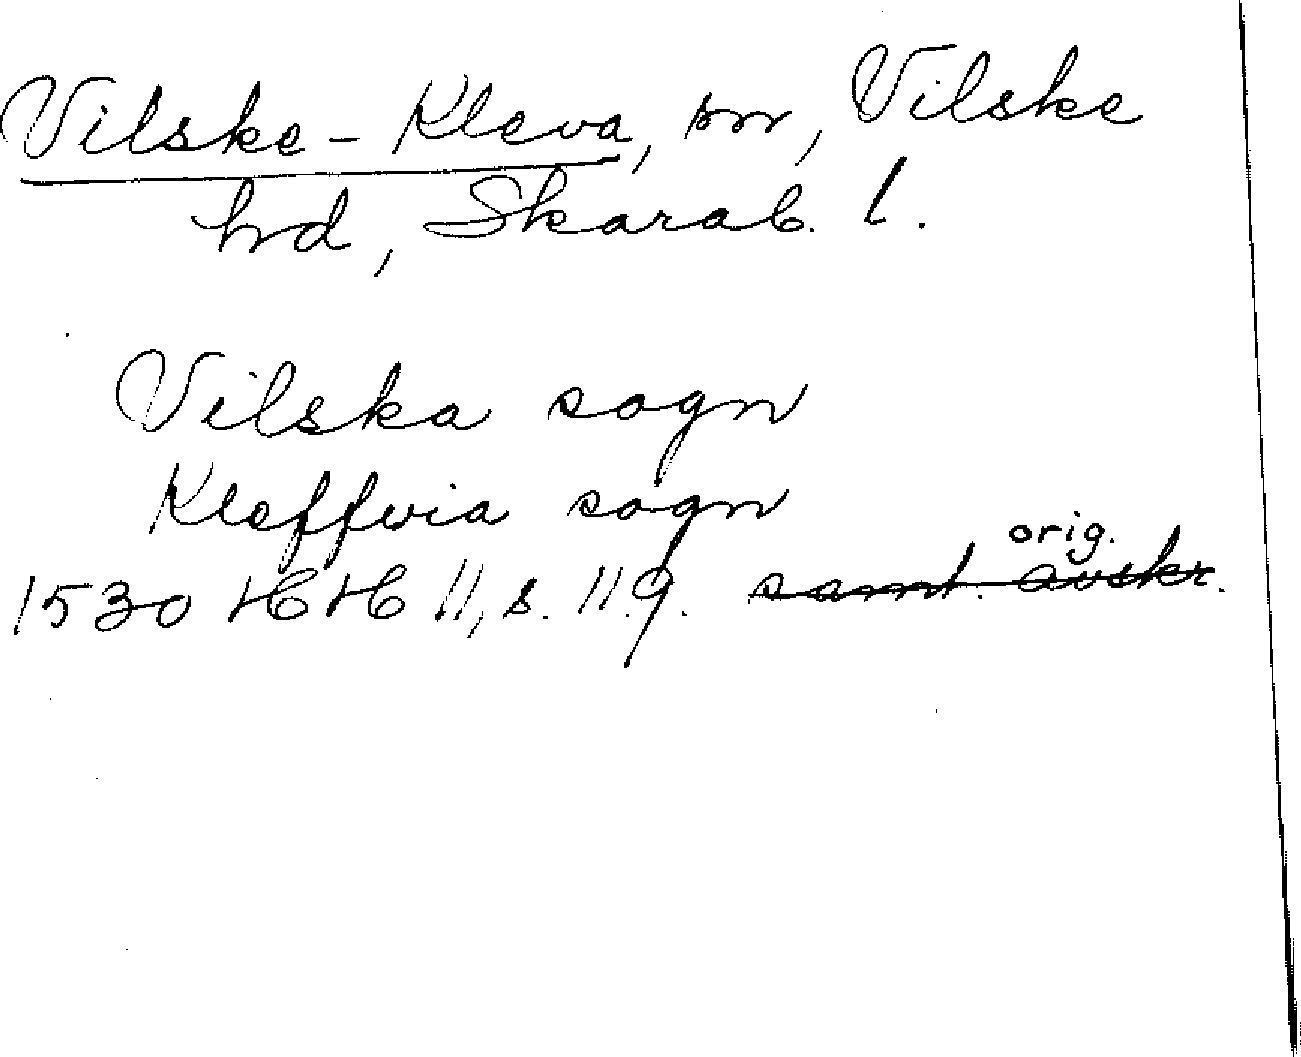 Vilske-Kleva, sn, Vilske
hd, Skarab. l.
Vilska sogn
Kleffvia sogn
orig.
1530 HH 11, s. 119. samt. avskr.